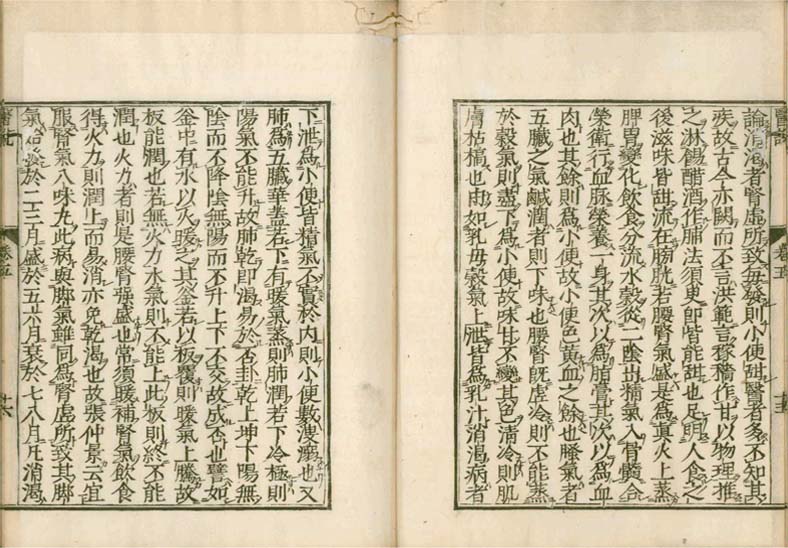 醫說 卷五 十五
論消渴者腎虛所致每發則小便甜醫者多不知其
疾故古今亦闕而不言洪範言稼穡作甘以物理推
之淋餳醋酒作脯法須臾即皆能甜也足明人食之
後滋味皆甜流在膀胱若腰腎氣盛是為真火上蒸
脾胃變化飲食分流水穀從二陰出精氣入骨髓合
榮衛行血脉榮養一身其次以為脂膏其次以為血
肉也其餘則為小便故小便色黃血之餘也臊氣者
五臟之氣鹹潤者則下味也腰腎既虛冷則不能蒸
於穀氣則盡下為小便故味甘不變其色清冷則肌
膚枯槁也由如乳母穀氣上泄皆為乳汁消渴病者
下泄為小便皆精氣不實於內則小便數溲溺也又
肺為五臟華蓋若下有暖氣蒸則肺潤若下冷極則
陽氣不能升故肺乾即渴易於否卦乾上坤下陽無
陰而不降陰無陽而不升上下不交故成否也譬如
釜中有水以火暖之其釜若以板覆則暖氣上騰故
板能潤也若無火力水氣則不能上此板則終不能
潤也火力者則是腰腎強盛也常須暖補腎氣飲食
得火力則潤上而易消亦免乾渴也故張仲景云宜
服腎氣八味丸此病與脚氣雖同為腎虛所致其脚
氣始發於二三月盛於五六月衰於七八月凡消渴
醫說 卷五 十六